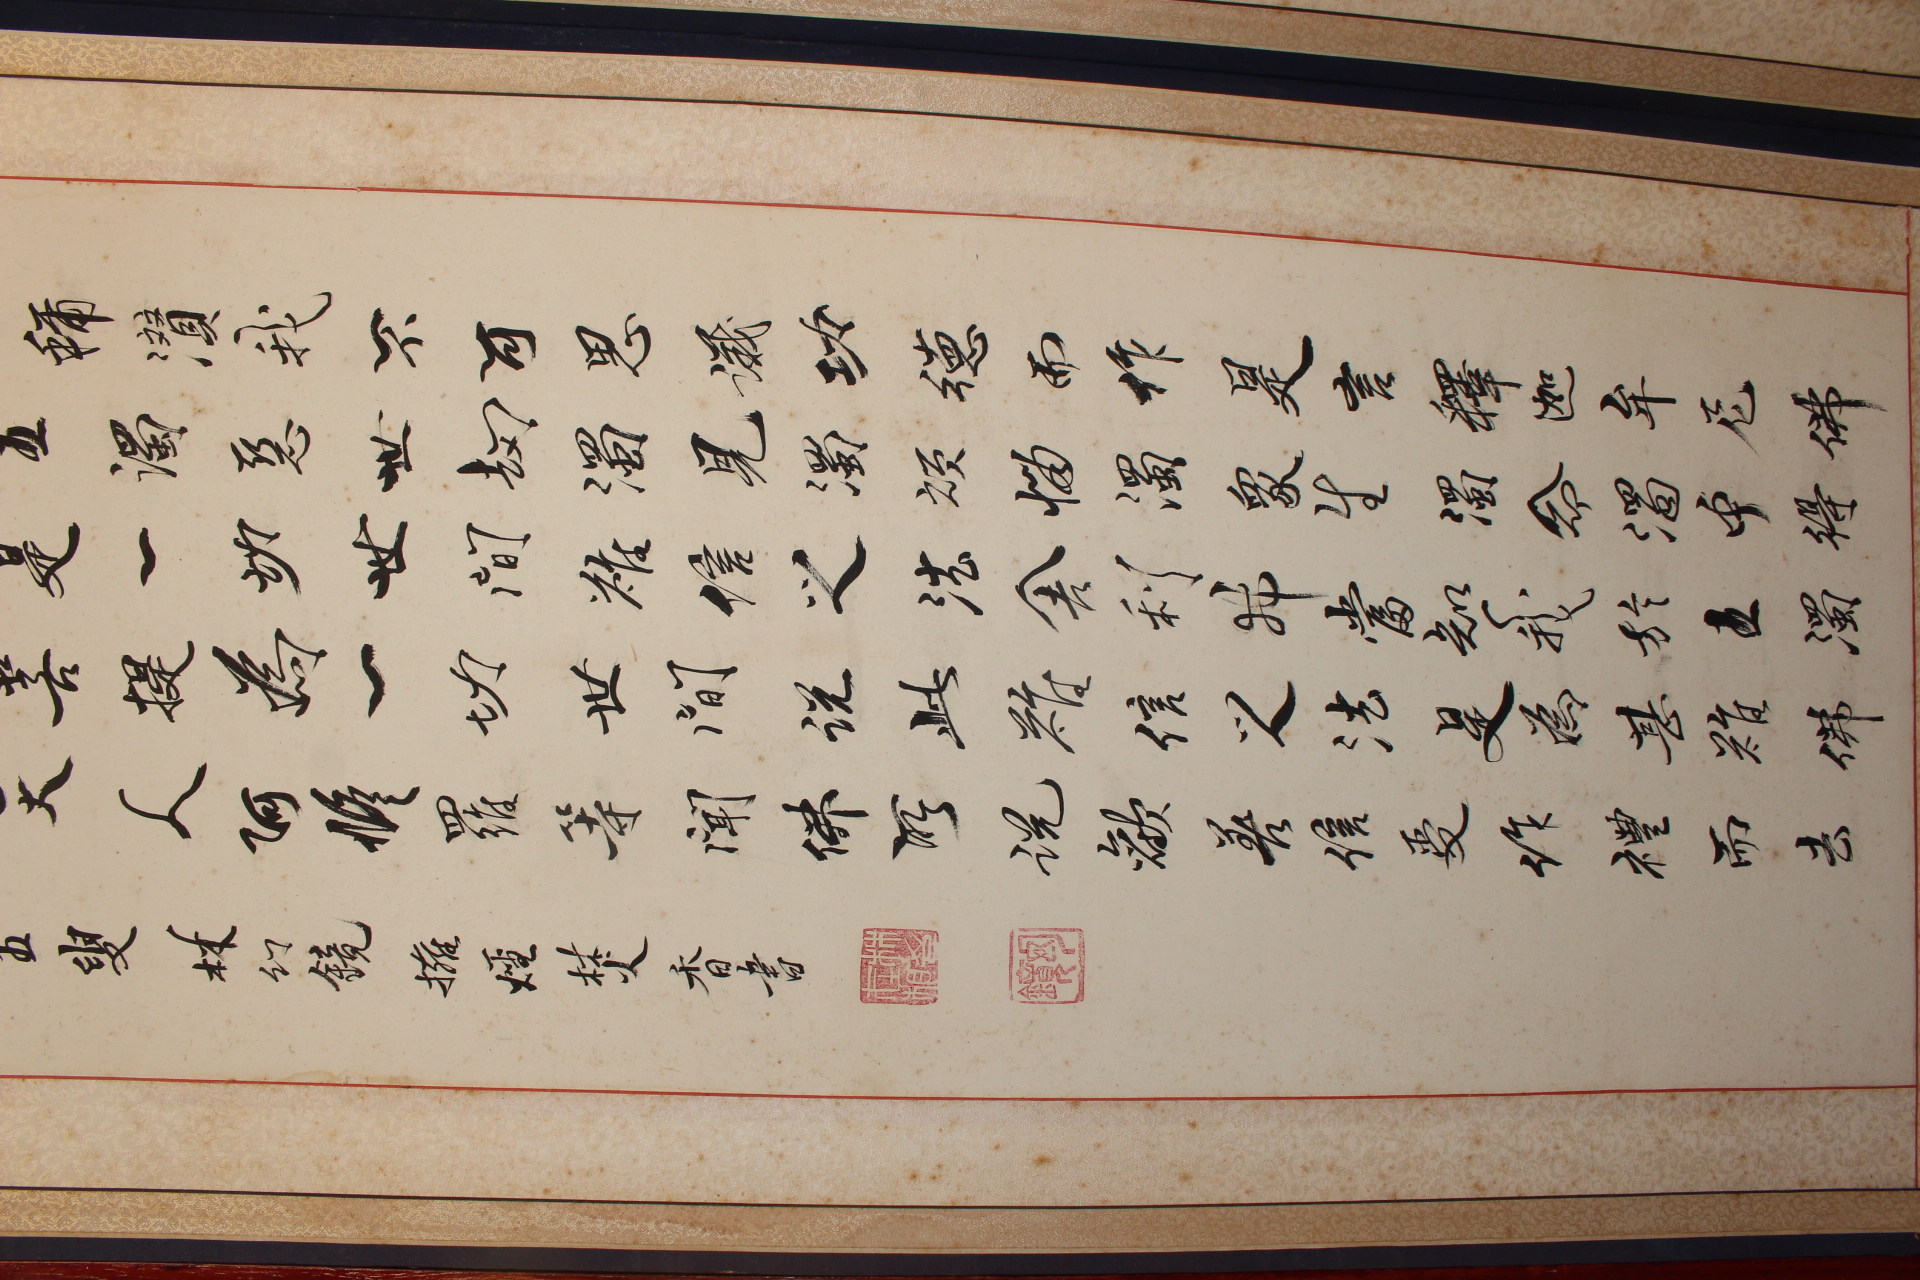 稱讚我不可思議功德而作是言釋迦牟尼佛
五濁惡世劫濁見濁煩惱濁眾生濁命濁中得
是一切世間難信之法舍利弗當知我於五濁
菩提為一切世間說此難信之法是為甚難佛
天人阿脩羅等聞佛所說歡喜信受作禮而去
五叟林幻鏡擁煙焚香書
幻鏡